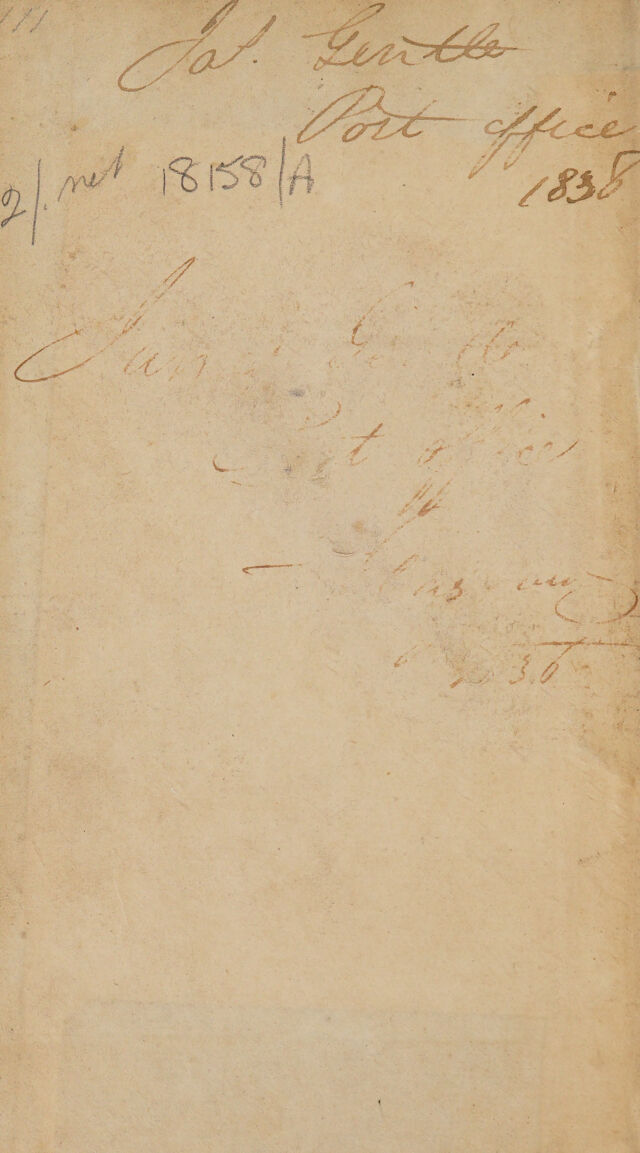 Jas. Gentle
Post office
1836
2/. net 18158/A
James Gentle
Post office